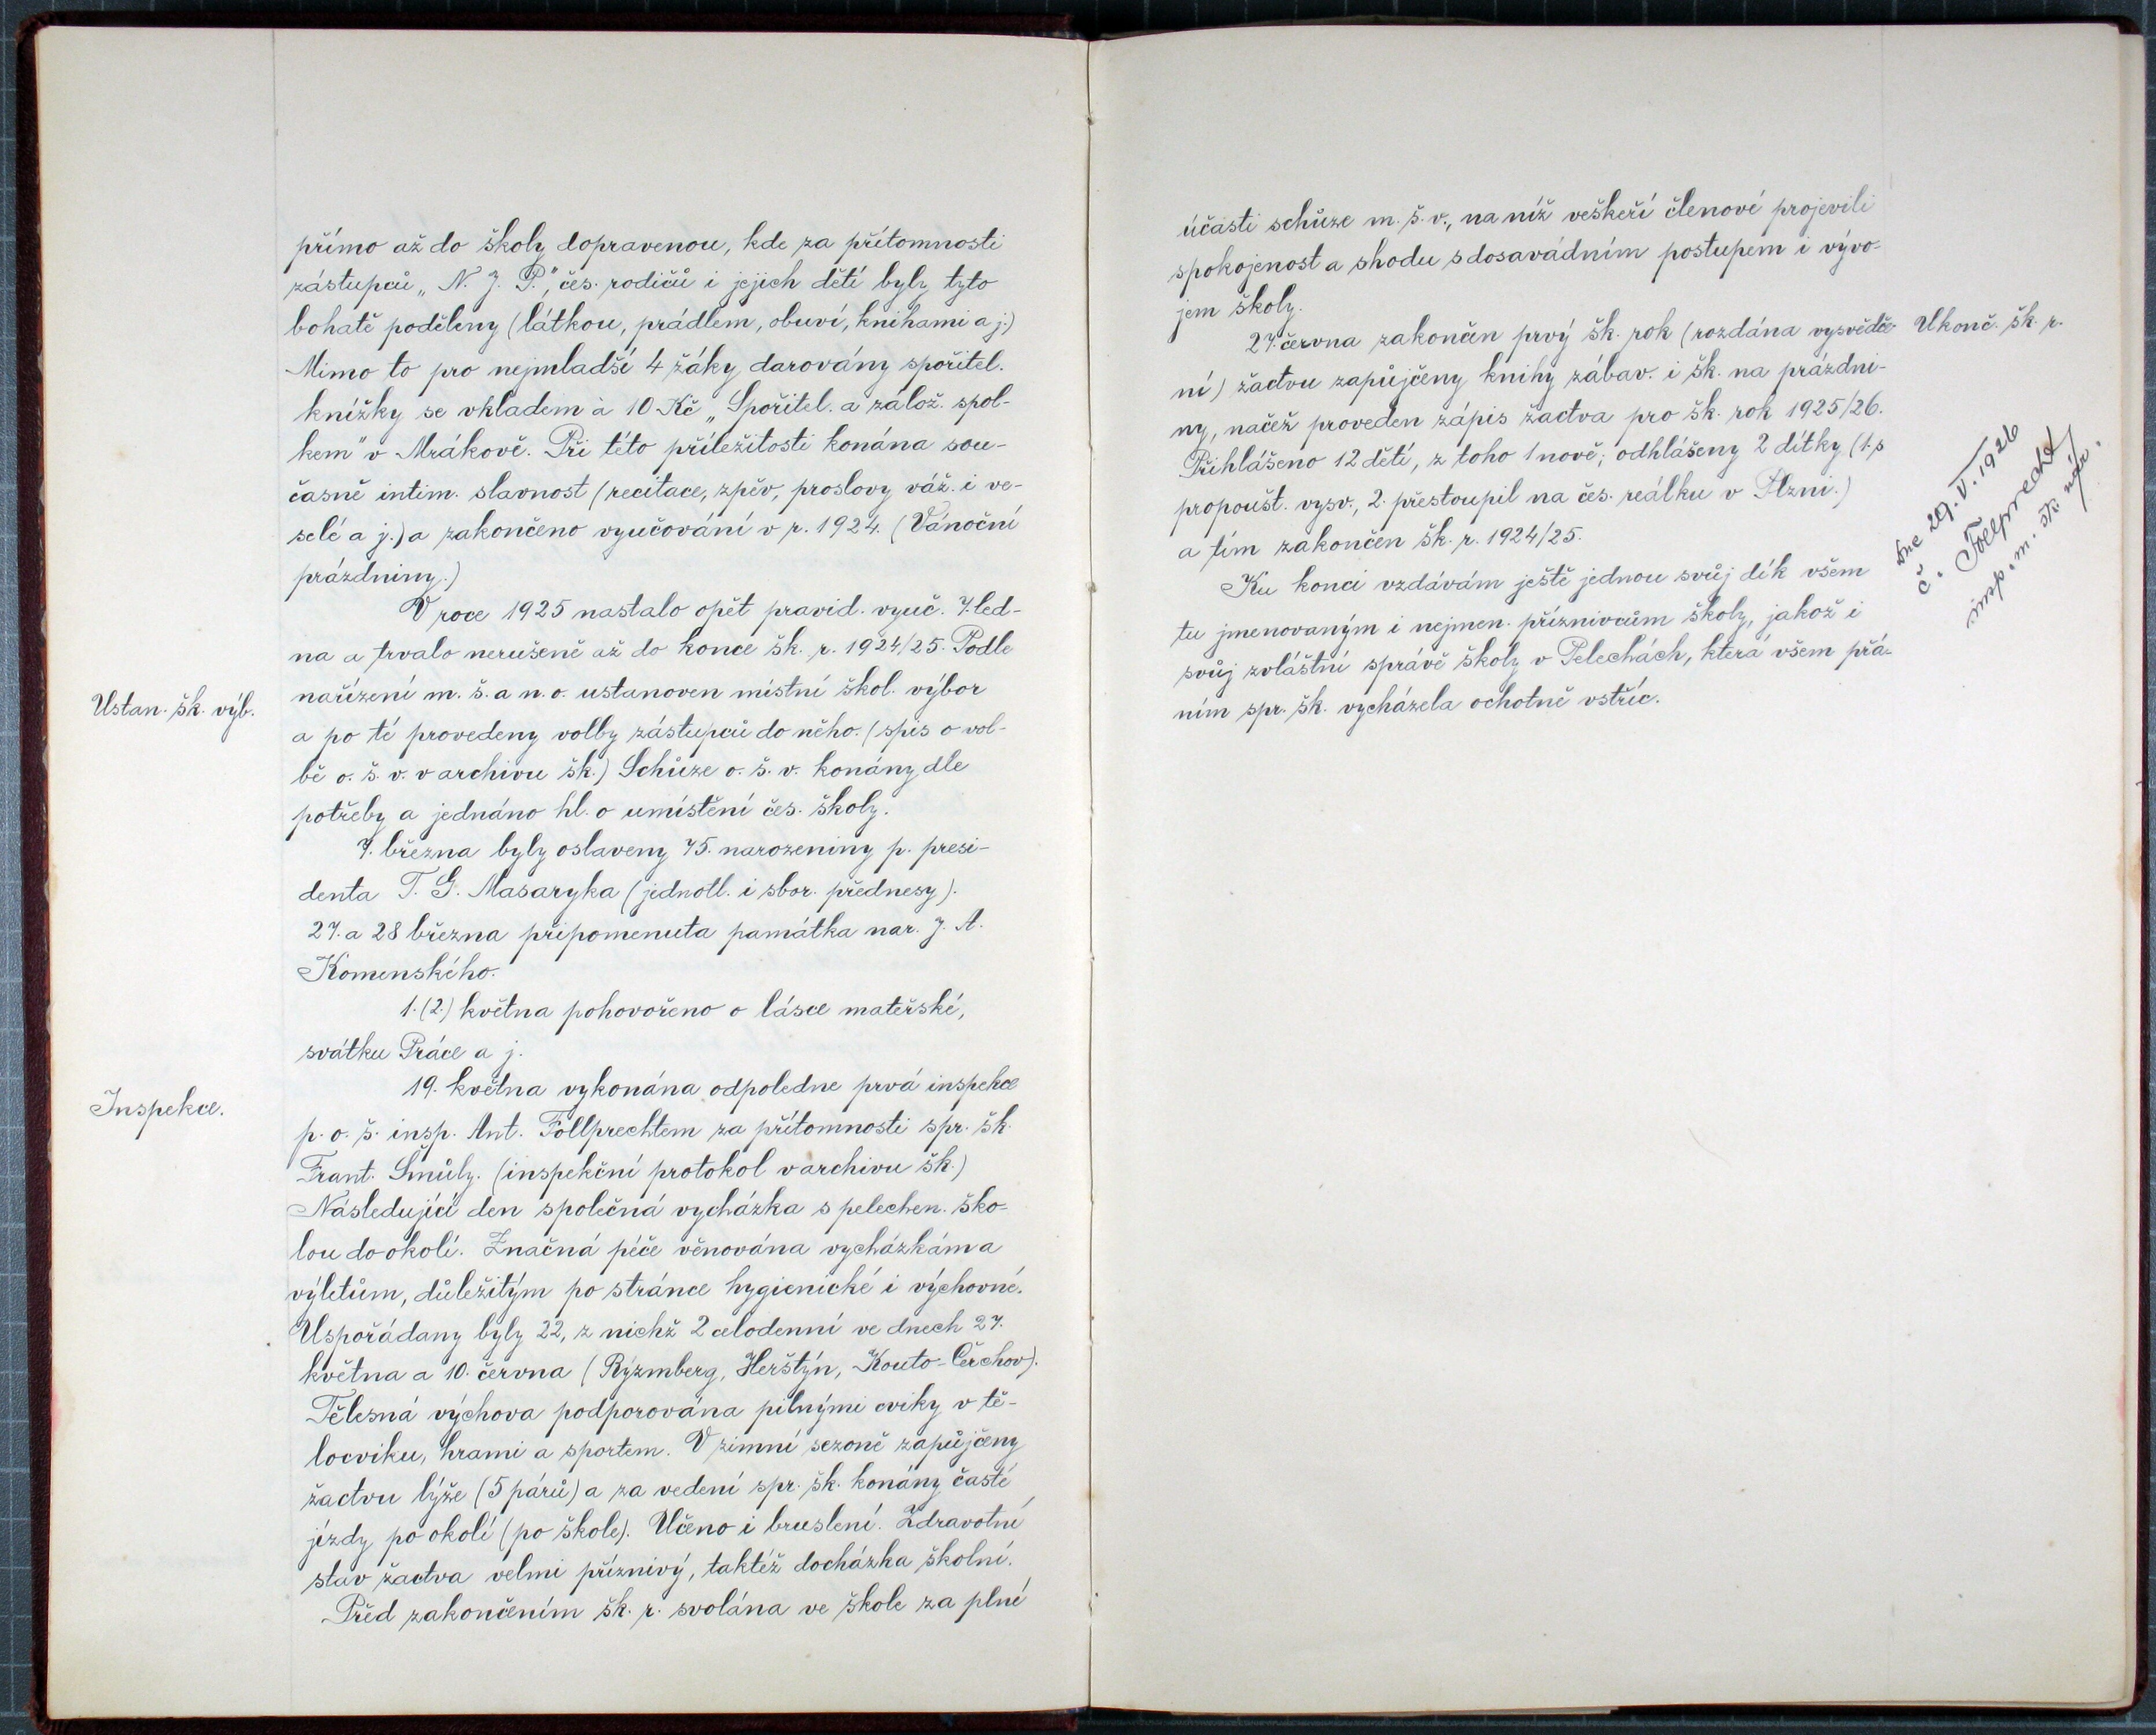 přímo až do školy dopravenou, kde za přítomnosti
zástupců „N. J. P.", čes. rodičů i jejich dětí byly tyto
bohatě poděleny (látkou, prádlem, obuví, knihami a j.)
Mimo to pro nejmladší 4 žáky darovány spořitel.
knížky se vkladem à 10 Kč „Spořitel. a zálož. spol-
kem" v Mrákově. Při této příležitosti konána sou-
časně intim. slavnost (recitace, zpěv, proslovy váž. i ve-
selé a j.) a zakončeno vyučování v r. 1924. (Vánoční
prázdniny.)
V roce 1925 nastalo opět pravid. vyuč. 7. led-
na a trvalo nerušeně až do konce šk. r. 1924/25. Podle
Ustan. šk. výb.
nařízení m. š. a n. o. ustanoven místní škol. výbor
a po té provedeny volby zástupců do něho. (spis o vol-
bě o. š. v. v archivu šk.) Schůze o. š. v. konány dle
potřeby a jednáno hl. o umístění čes. školy.
7. března byly oslaveny 75. narozeniny p. presi-
denta T. G. Masaryka (jednotl. i sbor. přednesy).
27. a 28 března připomenuta památka nar. J. A.
Komenského.
1. (2.) května pohovořeno o lásce mateřské,
svátku Práce a j.
Inspekce.
19. května vykonána odpoledne prvá inspekce
p. o. š. insp. Ant. Föllprechtem za přítomnosti spr. šk.
Frant. Šmůly. (inspekční protokol v archivu šk.)
Následující den společná vycházka s pelechen. ško-
lou do okolí. Značná péče věnována vycházkám a
výletům, důležitým po stránce hygienické i výchovné.
Uspořádany byly 22, z nichž 2 celodenní ve dnech 27.
května a 10. června (Rýzmberg, Herštýn, Kouto-Čerchov).
Tělesná výchova podporována pilnými cviky v tě-
locviku, hrami a sportem. V zimní sezoně zapůjčeny
žactvu lýže (5 párů) a za vedení spr. šk. konány časté
jízdy po okolí (po škole). Učeno i bruslení. Zdravotní
stav žactva velmi příznivý, taktéž docházka školní.
Před zakončením šk. r. svolána ve škole za plné
účasti schůze m. š. v., na níž veškeří členové projevili
spokojenost a shodu s dosavádním postupem i vývo-
jem školy.
27. června zakončen prvý šk. rok (rozdána vysvědče-
Ukonč. šk. r.
ní) žactvu zapůjčeny knihy zábav. i šk. na prázdni-
ny, načež proveden zápis žactva pro šk. rok 1925/26.
Přihlášeno 12 dětí, z toho 1 nově; odhlášeny 2 dítky (1. s
propoušt. vysv., 2. přestoupil na čes. reálku v Plzni.)
a tím zakončen šk. r. 1924/25.
Ku konci vzdávám ještě jednou svůj dík všem
tu jmenovaným i nejmen. příznivcům školy, jakož i
svůj zvláštní správě školy v Pelechách, která všem přá-
ním spr. šk. vycházela ochotně vstříc.
Dne 29. V. 1926
insp. m. šk. nár.